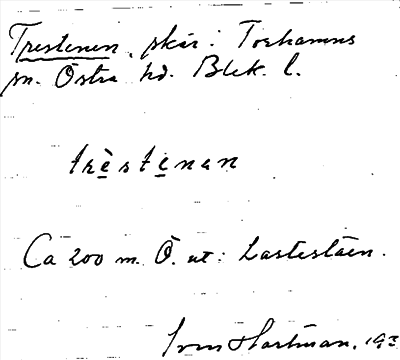 Trestenen, skär i Torhamns
sn. Östra hd. Blek. l.
trèstenan
Ca 200 m. Ö. ut: Lastestäen.
Hartman, 193